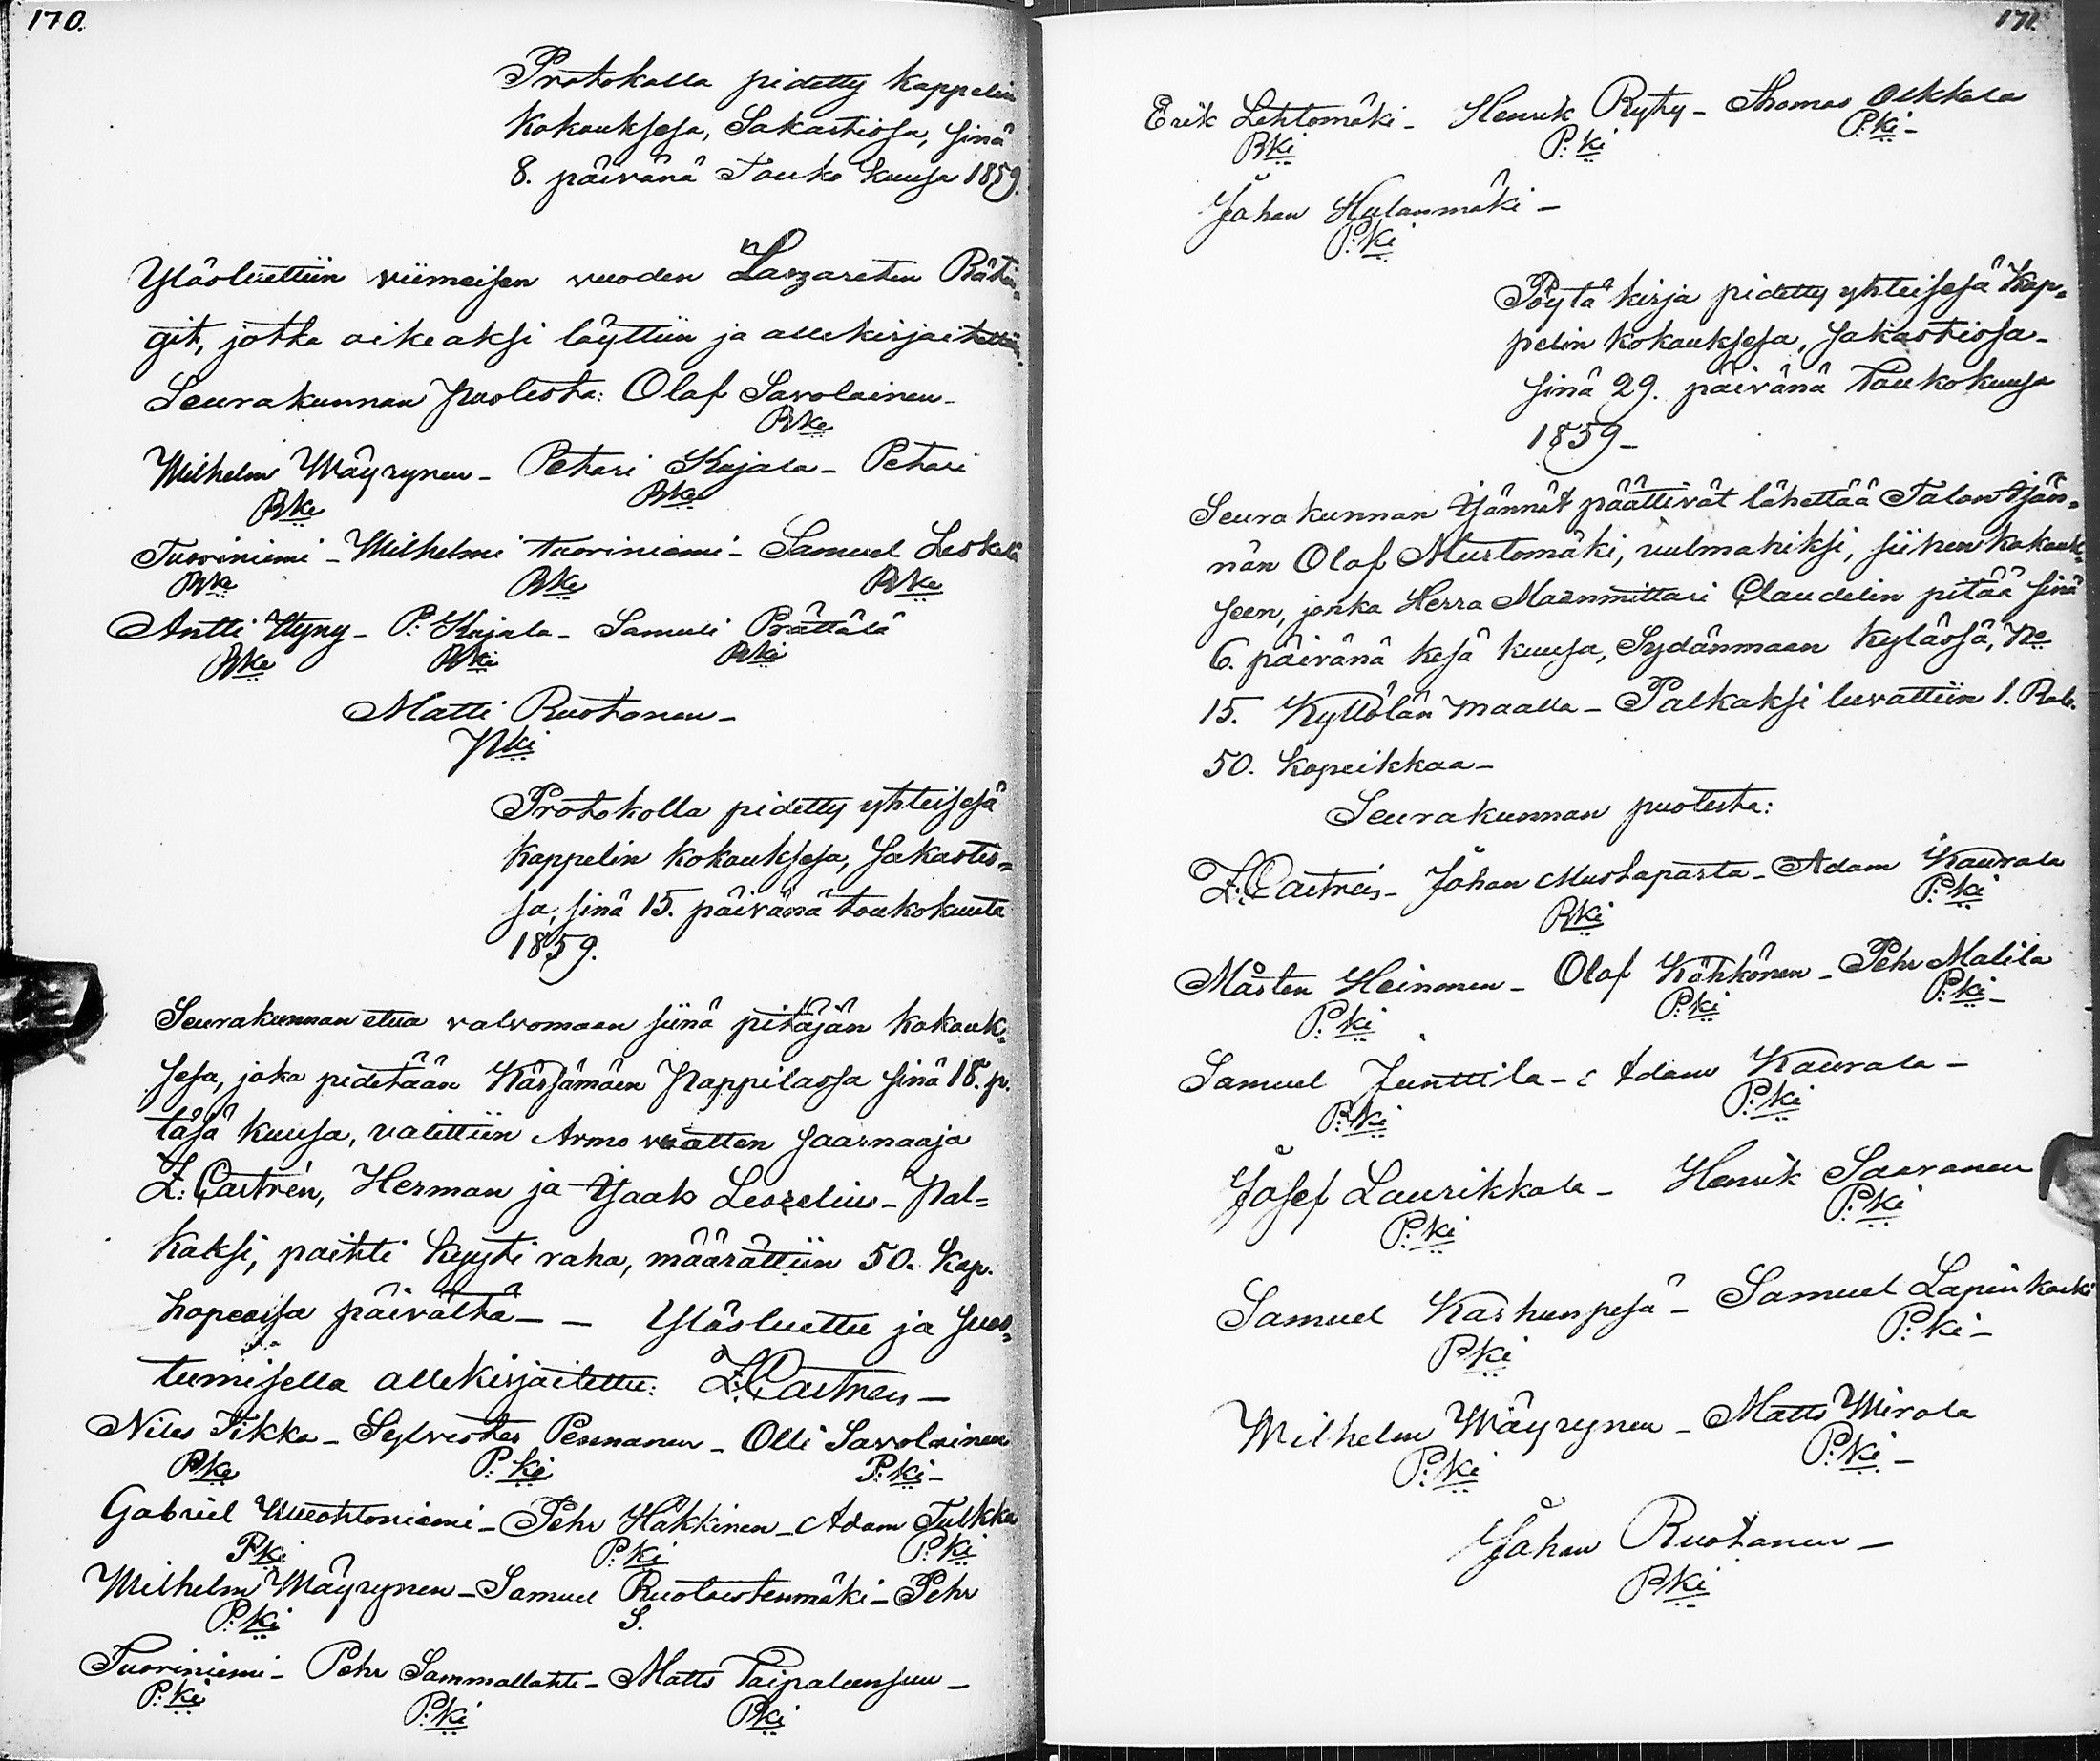 170.
Protokolla pidetty kappelin
kokouksesa, Sakastiosa, sinä
8. päivänä Touko kuusa 1859.
Ylösluettiin viimeisen vuoden Lanzaretin Räkin-
git, jotka oikeaksi löyttiin ja allekirjoitettiin.
Seurakunnan puolesta: Olaf Savolainen-
Pke
Wilhelm Wäyrynen - Petari Kajala - Petari
Pke Pke
Tuoriniemi - Wilhelmi tuoriniemi - Samuel Leskelä
Pke Pke Pke
Antti Hyny - P. Kajala - Samuli Prättälä
Pke Pki Pki
Matti Ruotonen -
Pki
Protokolla pidetty yhteisesä
kappelin kokouksesa, Sakastis-
sa, sinä 15. päivänä toukokuuta
1859.
Seurakunnan etua valvomaan siinä pitäjän kokouk-
sesa, joka pidetään Kärsämäen Pappilassa sinä 18. p.
täsä kuusa, valittiin Armo vuotten saarnaaja
Z: Castrén, Herman ja Jaak Leszelius - Pal-
kaksi, paitti kyyti raha, määrättiin 50. kop.
hopeassa päivältä - - Ylösluettu ja suos-
tumisella allekirjoitettu: Z: Castren -
Nils Tikka - Sylvester Pennanen - Olli Savolainen
Pke P: ki P: ki -
Gabriel Wuohtoniemi - Pehr Häkkinen - Adam Tulkka
Pki P: ki P: ki
Wilhelm Wäyrynen - Samuel Ruotoistenmäki - Pehr
P: ki S.
Tuoriniemi - Pehr Sammallahti - Matts Taipaleensuu -
P: ki P: ki Pki
171.
Erik Lehtomäki - Henrik Ryty - Thomas Olkkola
Pki P: ki P: ki -
Johan Hulanmäki -
P: ki
Pöytä kirja pidetty yhteisesä Kap-
pelin kokouksesa, sakastiosa -
sinä 29. päivänä Toukokuusa
1859 -
Seurakunnan Isännät päättivät lähettää Talon Isän-
nän Olaf Mustomäki, vulmahiksi, siihen kokouk-
seen, jonka Herra Maanmittari Claudelin pitää sinä
6. päivänä kesä kuusa, Sydänmaan kylässä, No
15. Kyllölän maalla - Palkaksi luvattiin 1. Rub.
50. kopeikkaa -
Seurakunnan puolesta:
Z: Castren - Johan Mustaparta - Adam Kaurala
Pki P: ki
Mårten Heinonen - Olaf Köhkönen - Pehr Malila
P: ki P: ki P: ki -
Samuel Junttila - Adam Kaurala -
P: ki P: ki
Josef Laurikkala - Henrik Saaranen
P: ki P: ki
Samuel Karhunpesä - Samuel Lapinkoski
Pki P: ki -
Wilhelm Wäyrynen - Matts Wirola
P: ki P: ki -
Johan Ruotanen -
Pki